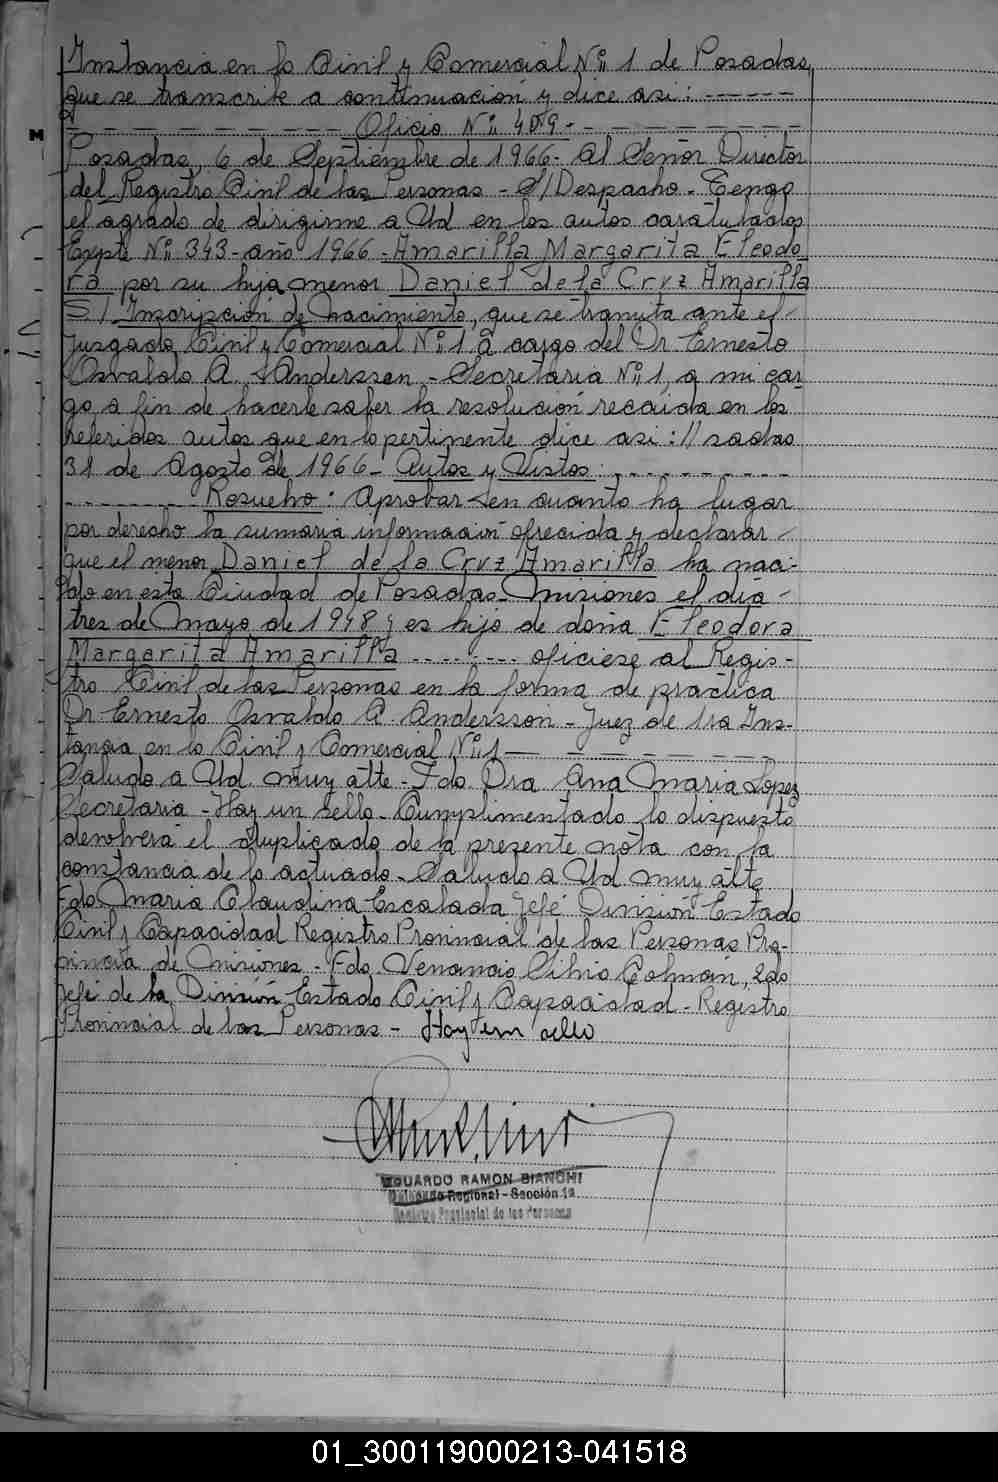 Instancia en lo Civil y Comercial Nº 1 de Posadas,
que se transcribe a continuación y dice asi: ------
---------- Oficio Nº 409- ---------
Posadas, 6 de Septiembre de 1966- Al Señor Director
del Registro Civil de las Personas - S/Despacho - Tengo
el agrado de dirigirme a Ud en los autos caratulados
Expte Nº 343- año 1966 - Amarilla Margarita Eleodo
ra por su hijo menor Daniel de la Cruz Amarilla
S/ Inscripción de nacimiento, que se tramita ante el
Juzgado Civil y Comercial Nº 1, a cargo del Dr Ernesto
Osvaldo A. Anderssen - Secretaria Nº 1, a mi car
go, a fin de hacerle saber la resolución recaida en los
referidos autos que en lo pertinente dice asi: // sadas
31 de Agosto de 1966- Autos y Vistos: ----------
---------- Resuelvo: Aprobar en cuanto ha lugar
por derecho la sumaria información ofrecida y declarar
que el menor Daniel de la Cruz Amarilla ha naci-
do en esta Ciudad de Posadas- Misiones el dia
tres de Mayo de 1948 y es hijo de doña Eleodora
Margarita Amarilla -------- oficiese al Regis-
tro Civil de las Personas en la forma de practica
Dr. Ernesto Osvaldo A Andersson - Juez de 1ra Ins-
tancia en lo Civil y Comercial Nº 1 --------
Saludo a Ud muy atte - Fdo Dra Ana Maria Lopez
Secretaria - Hay un sello - Cumplimentado lo dispuesto
devolverá el duplicado de la presente nota con la
constancia de lo actuado - Saludo a Ud muy atte
Fdo Maria Claudina Escalada Jefe División Estado
Civil y Capacidad Registro Provincial de las Personas Pro-
vincia de Misiones - Fdo Venancio Silvio Colman, 2do
Jefe de la División Estado Civil y Capacidad - Registro
Provincial de las Personas - Hay un sello
EDUARDO RAMON BIANCHI
Delegado Regional - Sección 1a
Registro Provincial de las Personas
01_300119000213-041518